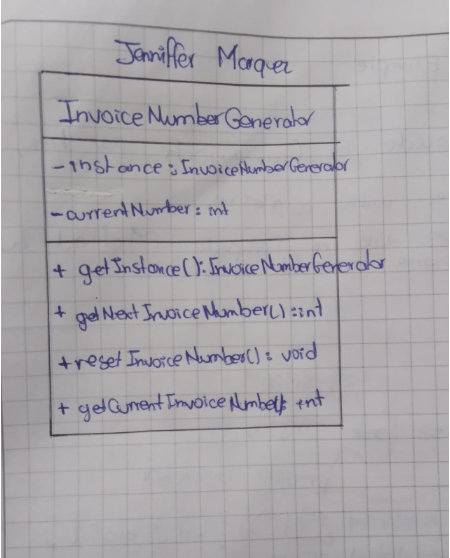 Jenniffer Marquez
InvoiceNumberGenerator
- instance : InvoiceNumberGenerator
- currentNumber : int
+ getInstance() : InvoiceNumberGenerator
+ getNextInvoiceNumber() : int
+ resetInvoiceNumber() : void
+ getCurrentInvoiceNumber() : int